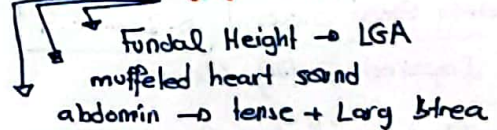 Fundal Height → LGA
muffeled heart sound
abdomin → tense + Larg